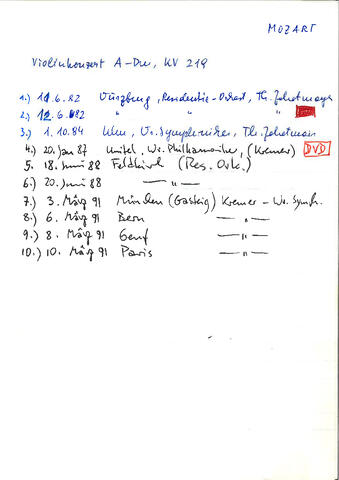 MOZART
Violinkonzert A-Dur, KV 219
1.) 11.6.82 Würzburg, Residentie-Orkest, Th. Zehetmair
2.) 12.6.82 " " "
3.) 1.10.84 Wien, Wr. Symphoniker, Th. Zehetmair
4.) 20. Jan 87 Unitel, Wr. Philharmoniker, (Kremer) DVD
5. 18. Juni 88 Feldkirch (Res. Ork.)
6.) 20. Juni 88 — " —
7.) 3. März 91 München (Gasteig) Kremer - Wr. Symph.
8.) 6. März 91 Bern — " —
9.) 8. März 91 Genf — " —
10.) 10. März 91 Paris — " —